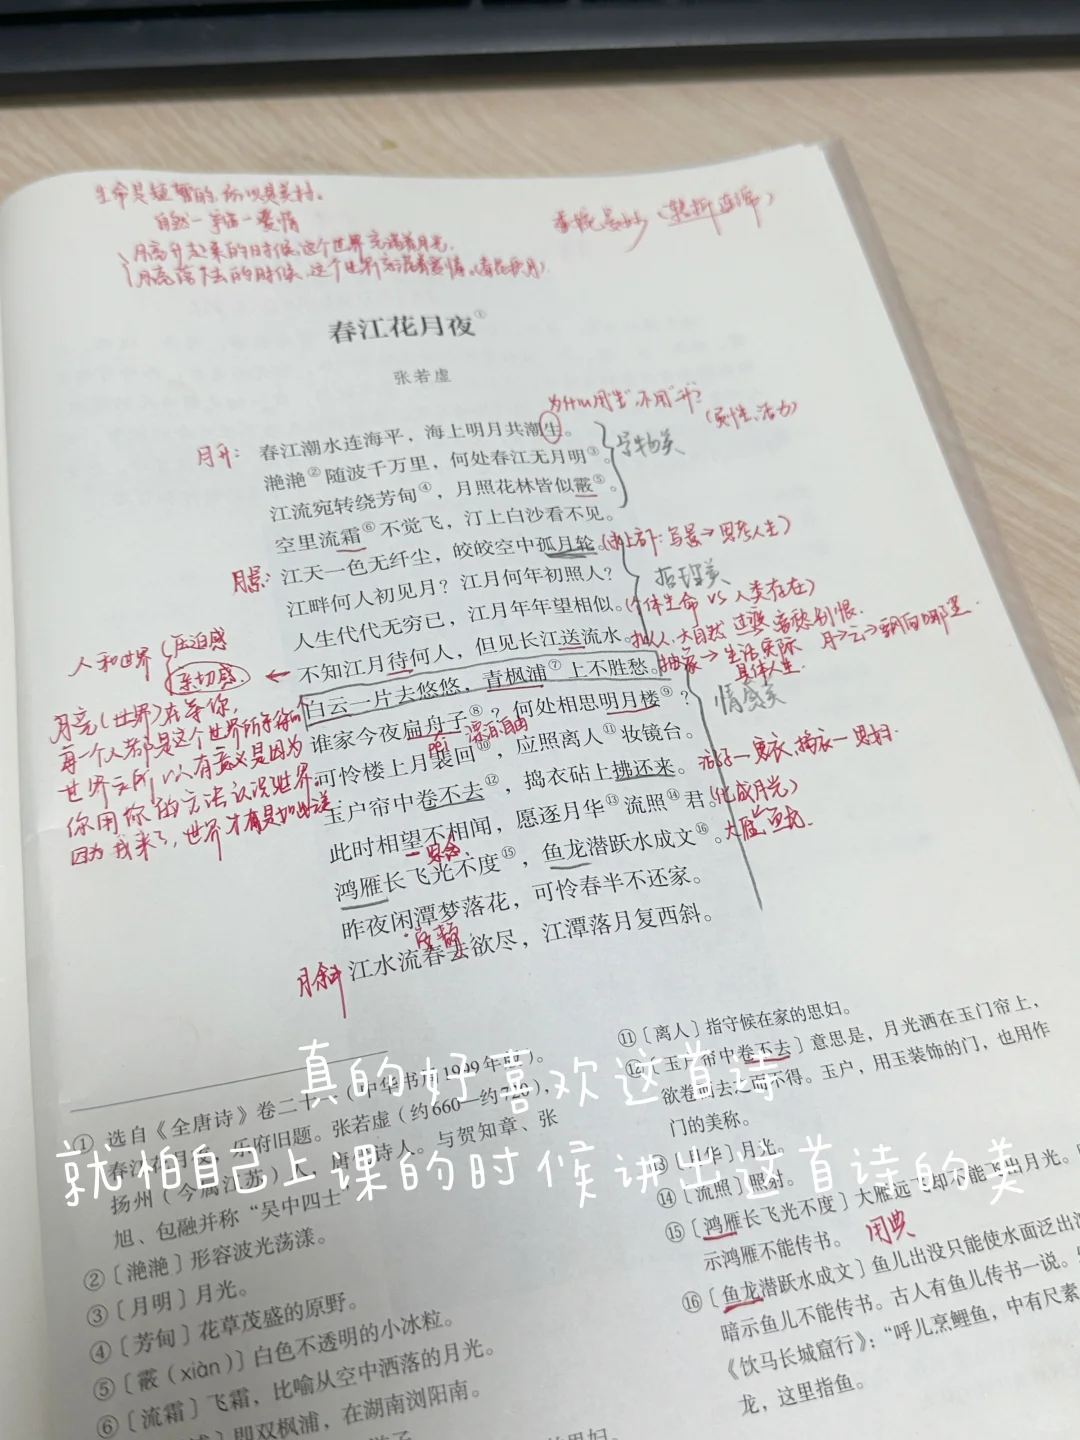 生命是短暂的，所以是美好。
自然—宇宙—爱情
月亮升起来的时候，这个世界充满着月光，
月亮落下去的时候，这个世界
春江花月夜①
张若虚
为什么用"生"不用"升"？
(灵性、活力)
月升：
春江潮水连海平，海上明月共潮生。
滟滟②随波千万里，何处春江无月明③。
江流宛转绕芳甸④，月照花林皆似霰⑤。
空里流霜⑥不觉飞，汀上白沙看不见。
江天一色无纤尘，皎皎空中孤月轮。
(承上启下：写景→思考人生)
月景：
江畔何人初见月？江月何年初照人？
哲理美
人生代代无穷已，江月年年望相似。
(个体生命 VS 人类存在)
不知江月待何人，但见长江送流水。
拟人，大自然
白云一片去悠悠，青枫浦⑦上不胜愁。
抽象→生活实际
具体人生
月→云→飘向哪里
情感美
谁家今夜扁舟子⑧？何处相思明月楼⑨？
漂泊自由
可怜楼上月裴回⑩，应照离人⑪妆镜台。
玉户帘中卷不去⑫，捣衣砧上拂还来。
此时相望不相闻，愿逐月华⑬流照⑭君。
(化成月光)
鸿雁长飞光不度⑮，鱼龙潜跃水成文⑯。
大雁 鱼龙
昨夜闲潭梦落花，可怜春半不还家。
月斜
江水流春去欲尽，江潭落月复西斜。
人和世界
压迫感
亲切感
月亮(世界)在等你，
每一个人都是这个世界所等待的
世界之所以有意义是因为
你用你的方法认识世界，
因为我来了，世界才有
真的好喜欢这首诗
就怕自己上课的时候讲出这首诗的美
① 选自《全唐诗》卷二十一（中华书局1999年版）。
春江花月夜，乐府旧题。张若虚（约660—约720），
扬州（今属江苏）人，唐代诗人。与贺知章、张
旭、包融并称“吴中四士”
②〔滟滟〕形容波光荡漾。
③〔月明〕月光。
④〔芳甸〕花草茂盛的原野。
⑤〔霰（xiàn）〕白色不透明的小冰粒。
⑥〔流霜〕飞霜，比喻从空中洒落的月光。
即双枫浦，在湖南浏阳南。
⑪〔离人〕指守候在家的思妇。
⑫〔玉户帘中卷不去〕意思是，月光洒在玉门帘上，
欲卷而去之而不得。玉户，用玉装饰的门，也用作
门的美称。
⑬〔月华〕月光。
⑭〔流照〕照射。
⑮〔鸿雁长飞光不度〕大雁远飞却不能飞出月光。
示鸿雁不能传书。
用典
⑯〔鱼龙潜跃水成文〕鱼儿出没只能使水面泛出
暗示鱼儿不能传书。古人有鱼儿传书一说。
《饮马长城窟行》：“呼儿烹鲤鱼，中有尺素
龙，这里指鱼。